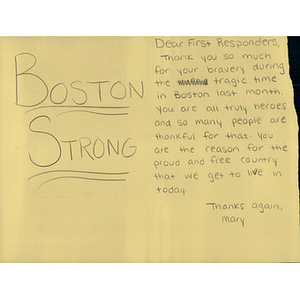 BOSTON
STRONG
Dear First Responders,
Thank you so much
for your bravery during
the tragic time
in Boston last month.
You are all truly heroes
and so many people are
thankful for that. You
are the reason for the
proud and free country
that we get to live in
today.
Thanks again,
Mary